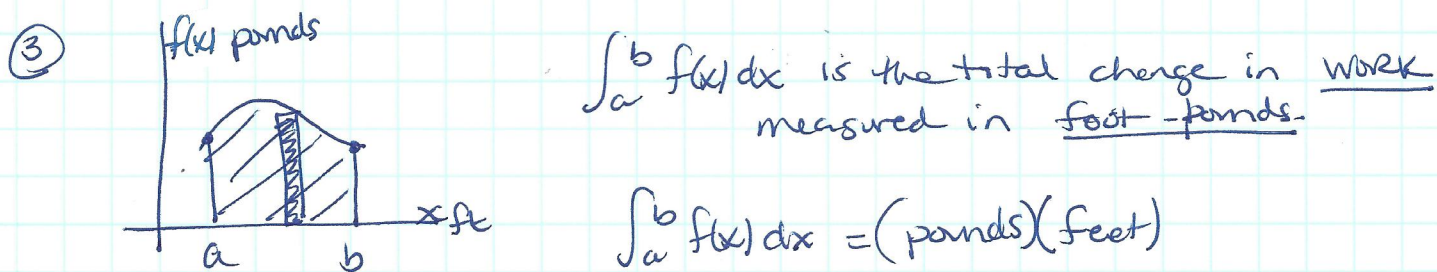 ③
f(x) pounds
∫_a^b f(x) dx is the total change in work
measured in foot-pounds.
x ft
a b
∫_a^b f(x) dx = (pounds)(feet)